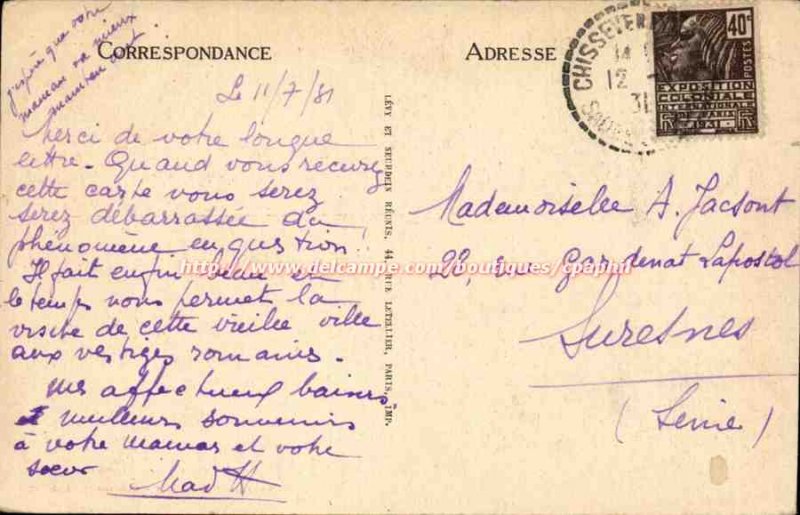 j'espère que votre
maman va mieux
maintenant.
CORRESPONDANCE
Le 11/7/31
Merci de votre longue
lettre. Quand vous recevrez
cette carte vous serez
serez débarrassée du
phénomène en question.
Il fait enfin beau et
le temps nous permet la
visite de cette vieille ville
aux vestiges romains.
Mes affectueux baisers
et meilleurs souvenirs
à votre maman et votre
soeur
Mad H
LÉVY ET NEURDEIN RÉUNIS, 44, RUE LETELLIER, PARIS, IMP.
ADRESSE
CHISSEY
12
31
40c
POSTES
EXPOSITION
COLONIALE
INTERNATIONALE
PARIS
RF 1931 RF
Mademoiselle A. Jacsont
22, rue Gardenat Lapostol
Suresnes
(Seine)
http://www.delcampe.com/boutiques/cpaphil